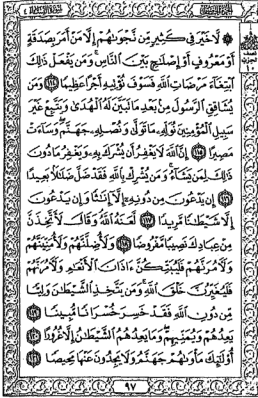 لَّا خَيْرَ فِي كَثِيرٍ مِّن نَّجْوَىٰهُمْ إِلَّا مَنْ أَمَرَ بِصَدَقَةٍ
أَوْ مَعْرُوفٍ أَوْ إِصْلَٰحٍ بَيْنَ النَّاسِ وَمَن يَفْعَلْ ذَٰلِكَ
ابْتِغَآءَ مَرْضَاتِ اللَّهِ فَسَوْفَ نُؤْتِيهِ أَجْرًا عَظِيمًا ١١٤ وَمَن
يُشَاقِقِ الرَّسُولَ مِنۢ بَعْدِ مَا تَبَيَّنَ لَهُ الْهُدَىٰ وَيَتَّبِعْ غَيْرَ
سَبِيلِ الْمُؤْمِنِينَ نُوَلِّهِۦ مَا تَوَلَّىٰ وَنُصْلِهِۦ جَهَنَّمَ وَسَآءَتْ
مَصِيرًا ١١٥ إِنَّ اللَّهَ لَا يَغْفِرُ أَن يُشْرَكَ بِهِۦ وَيَغْفِرُ مَا دُونَ
ذَٰلِكَ لِمَن يَشَآءُ وَمَن يُشْرِكْ بِاللَّهِ فَقَدْ ضَلَّ ضَلَٰلًۢا بَعِيدًا
١١٦ إِن يَدْعُونَ مِن دُونِهِۦٓ إِلَّآ إِنَٰثًا وَإِن يَدْعُونَ
إِلَّا شَيْطَٰنًا مَّرِيدًا ١١٧ لَّعَنَهُ اللَّهُ وَقَالَ لَأَتَّخِذَنَّ
مِنْ عِبَادِكَ نَصِيبًا مَّفْرُوضًا ١١٨ وَلَأُضِلَّنَّهُمْ وَلَأُمَنِّيَنَّهُمْ
وَلَءَامُرَنَّهُمْ فَلَيُبَتِّكُنَّ ءَاذَانَ الْأَنْعَٰمِ وَلَءَامُرَنَّهُمْ
فَلَيُغَيِّرُنَّ خَلْقَ اللَّهِ وَمَن يَتَّخِذِ الشَّيْطَٰنَ وَلِيًّا
مِّن دُونِ اللَّهِ فَقَدْ خَسِرَ خُسْرَانًا مُّبِينًا ١١٩
يَعِدُهُمْ وَيُمَنِّيهِمْ وَمَا يَعِدُهُمُ الشَّيْطَٰنُ إِلَّا غُرُورًا ١٢٠
أُو۟لَٰٓئِكَ مَأْوَىٰهُمْ جَهَنَّمُ وَلَا يَجِدُونَ عَنْهَا مَحِيصًا ١٢١
٩٧